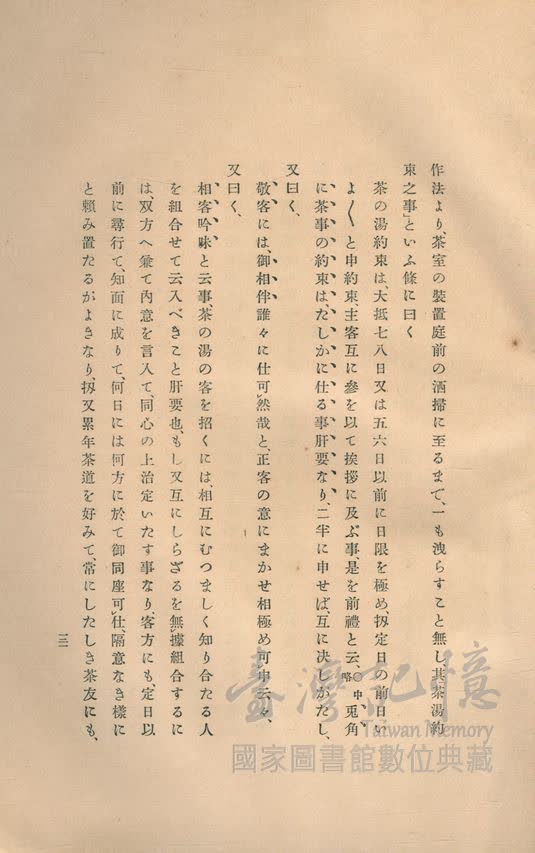 作法より、茶室の裝置庭前の洒掃に至るまで、一も洩らすこと無し、其茶湯約
束之事」といふ條に曰く
茶の湯約束は、大抵七八日又は五六日以前に日限を極め、扨定日の前日い
よ〱と申約束主客互に參を以て挨拶に及ぶ事、是を前禮と云、〇中略兎角
に茶事の約束は、たしかに仕る事肝要なり、二半に申せば、互に決しがたし、
又曰く、
敬客には、御相伴誰々に仕可然哉と、正客の意にまかせ相極め可申云々、
又曰く、
相客吟味と云事、茶の湯の客を招くには、相互にむつましく知り合たる人
を組合せて云入べきこと肝要也、もし又互にしらざるを無據組合するに
は、双方へ兼て內意を言入て、同心の上治定いたす事なり、客方にも、定日以
前に尋行て、知面に成りて、何日には何方に於て御同座可仕、隔意なき樣に
と賴み置たるがよきなり、扨又累年茶道を好みて、常にしたしき茶友にも、
臺灣記憶
Taiwan Memory
國家圖書館數位典藏